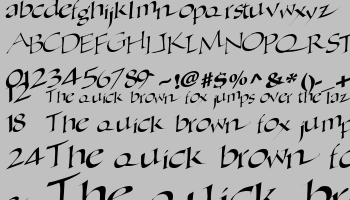 abcdefghijklmnopqrstuvwxyz
ABCDEFGHIJKLMNOPQRST
0123456789 ~!@#$%^&*()-+
12 The quick brown fox jumps over the laz
18 The quick brown fox jump
24 The quick brown fo
The quick br